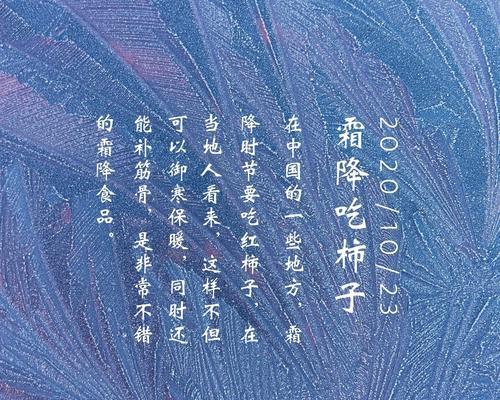 2020/10/23
霜降吃柿子
在中国的一些地方，霜
降时节要吃红柿子，在
当地人看来，这样不但
可以御寒保暖，同时还
能补筋骨，是非常不错
的霜降食品。